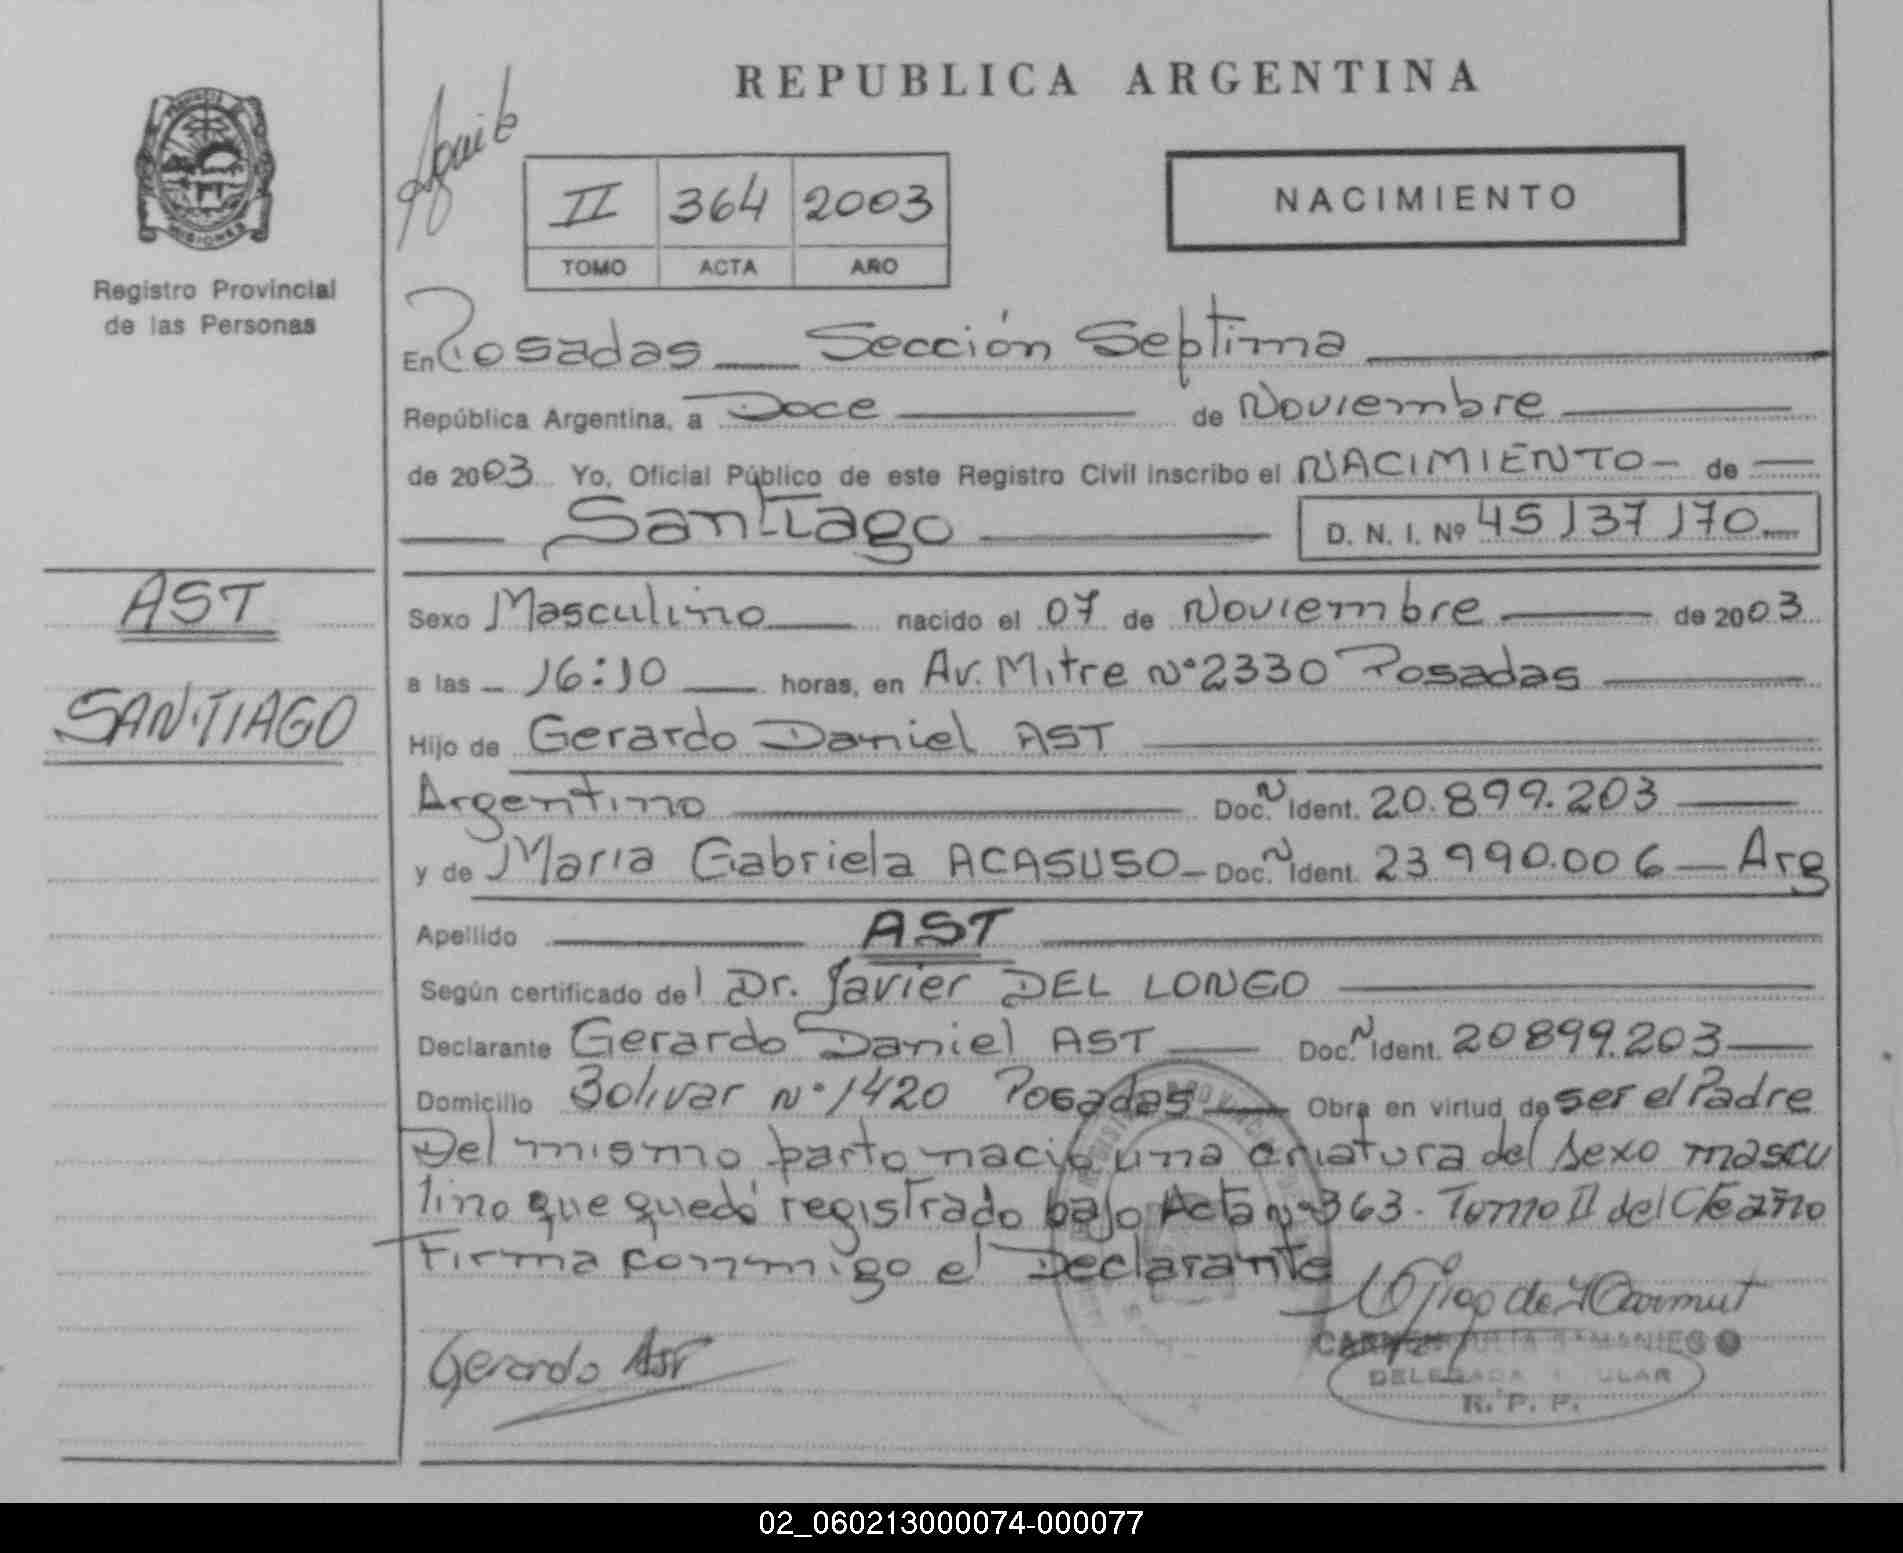 REPUBLICA ARGENTINA
MISIONES
Registro Provincial
de las Personas
II 364 2003
TOMO ACTA AÑO
NACIMIENTO
En Posadas Sección Septima
República Argentina, a Doce de Noviembre
de 2003 Yo, Oficial Público de este Registro Civil inscribo el NACIMIENTO de
Santiago D. N. I. Nº 45137170
AST
SANTIAGO
Sexo Masculino nacido el 07 de Noviembre de 2003
a las 16:10 horas, en Av. Mitre Nº 2330 Posadas
Hijo de Gerardo Daniel AST
Argentino Doc. N Ident. 20.899.203
y de Maria Gabriela ACASUSO Doc. N Ident. 23 990.006 Arg
Apellido AST
Según certificado del Dr. Javier DEL LONGO
Declarante Gerardo Daniel AST Doc. N Ident. 20899.203
Domicilio Bolivar Nº 1420 Posadas Obra en virtud de ser el Padre
Del mismo parto nació una criatura del sexo mascu
lino que quedó registrado bajo Acta Nº 363. Tomo II del Cte año
Firma conmigo el Declarante
Gerardo Ast
DELEGADA
R. P. P.
02_060213000074-000077